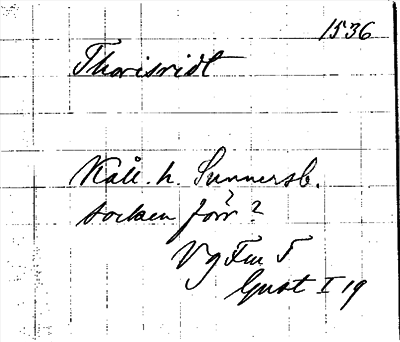 1536
Thorisridt
Kåll. h. Sunnersb.
socken förr?
Vg Fm 5
Gust I 19